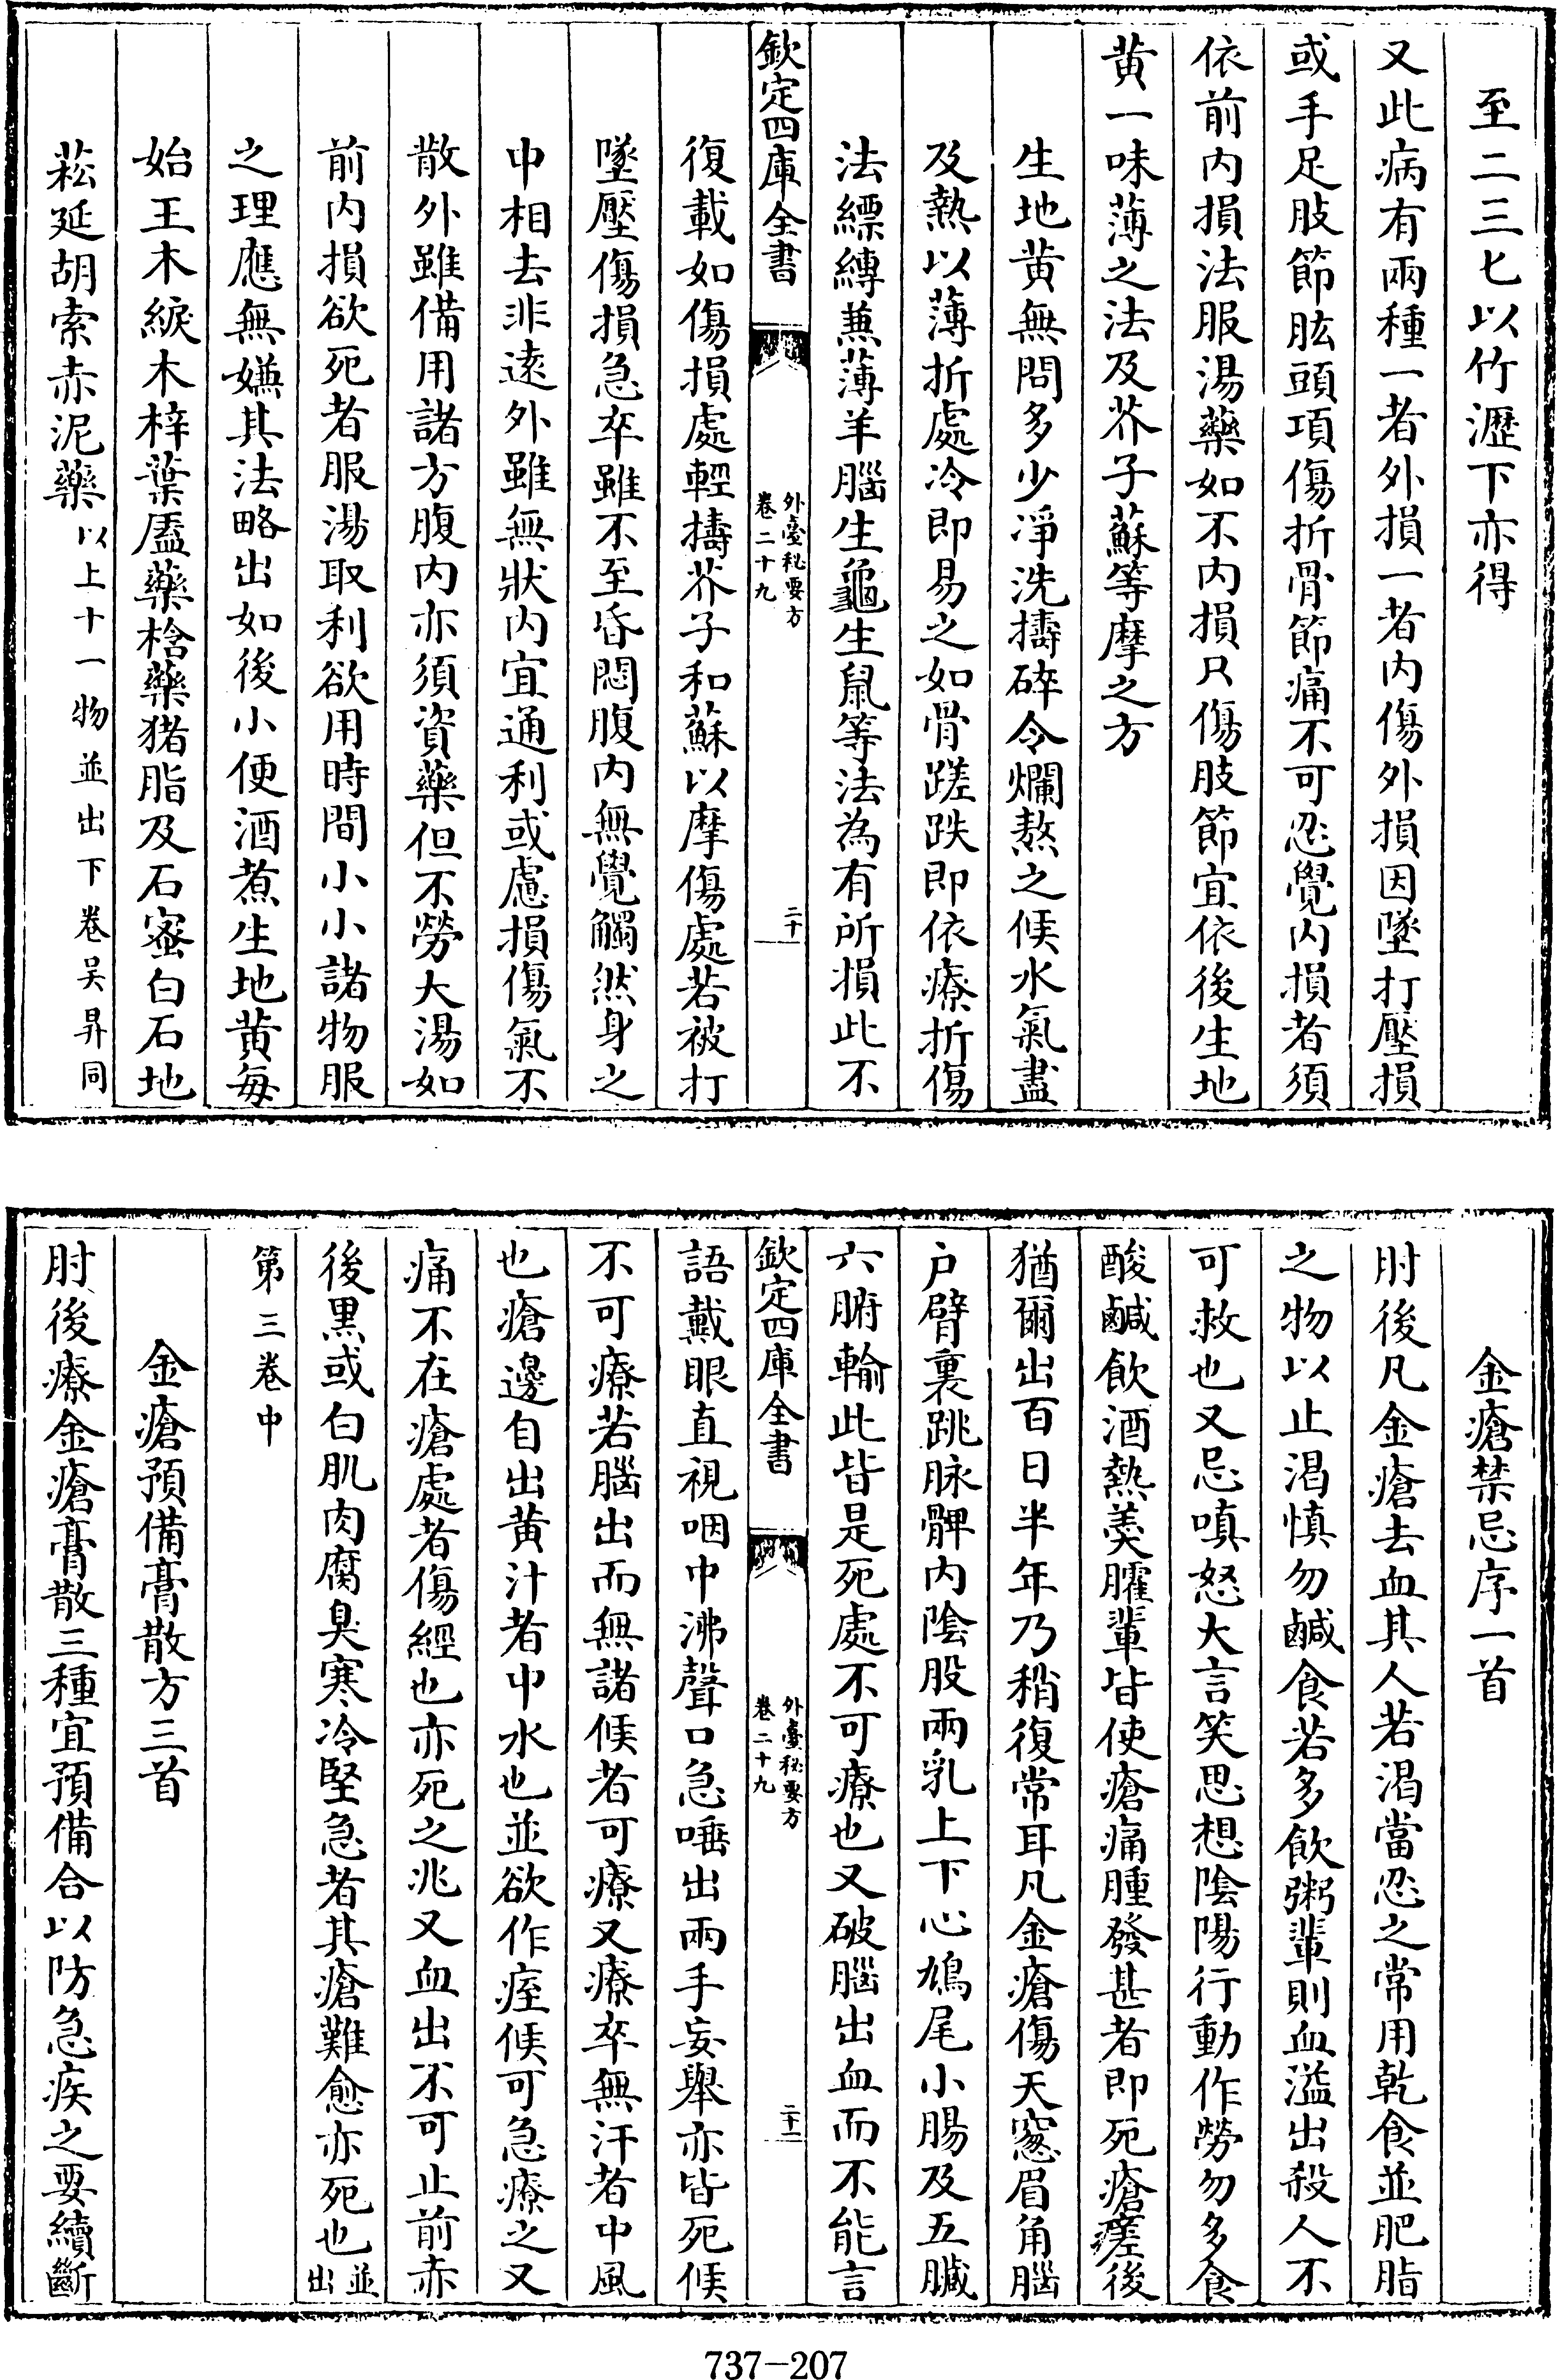 至二三七以竹瀝下亦得
又此病有兩種一者外損一者内傷外損因墜打壓損
或手足肢節肱頭項傷折骨節痛不可忍覺内損者須
依前内損法服湯藥如不内損只傷肢節宜依後生地
黄一味薄之法及芥子蘇等摩之方
生地黄無問多少淨洗擣碎令爛熬之候水氣盡
及熱以薄折處冷即易之如骨蹉跌即依療折傷
法縹縳兼薄羊腦生龜生鼠等法為有所損此不
欽定四庫全書
外臺秘要方
卷二十九
二十一
復載如傷損處輕擣芥子和蘇以摩傷處若被打
墜壓傷損急卒雖不至昏悶腹内無覺觸然身之
中相去非逺外雖無狀内宜通利或慮損傷氣不
散外雖備用諸方腹内亦須資藥但不勞大湯如
前内損欲死者服湯取利欲用時間小小諸物服
之理應無嫌其法略出如後小便酒煮生地黄每
始王木綟木梓葉䕡藥㭘藥猪脂及石蜜白石地
菘延胡索赤泥藥以上十一物並出下卷吴昇同
金瘡禁忌序一首
肘後凡金瘡去血其人若渇當忍之常用乾食並肥脂
之物以止渇慎勿鹹食若多飲粥軰則血溢出殺人不
可救也又忌嗔怒大言笑思想隂陽行動作勞勿多食
酸鹹飲酒熱羮臛軰皆使瘡痛腫發甚者即死瘡瘥後
猶爾出百日半年乃稍復常耳凡金瘡傷天窻眉角腦
户臂裏跳脉髀内隂股兩乳上下心鳩尾小腸及五臟
六腑輸此皆是死處不可療也又破腦出血而不能言
欽定四庫全書
外臺秘要方
卷二十九
二十二
語戴眼直視咽中沸聲口急唾出兩手妄舉亦皆死候
不可療若腦出而無諸候者可療又療卒無汗者中風
也瘡邊自出黄汁者中水也並欲作痓候可急療之又
痛不在瘡處者傷經也亦死之兆又血出不可止前赤
後黒或白肌肉腐臭寒冷堅急者其瘡難愈亦死也並出
第三卷中
金瘡預備膏散方三首
肘後療金瘡膏散三種宜預備合以防急疾之要續斷
737-207